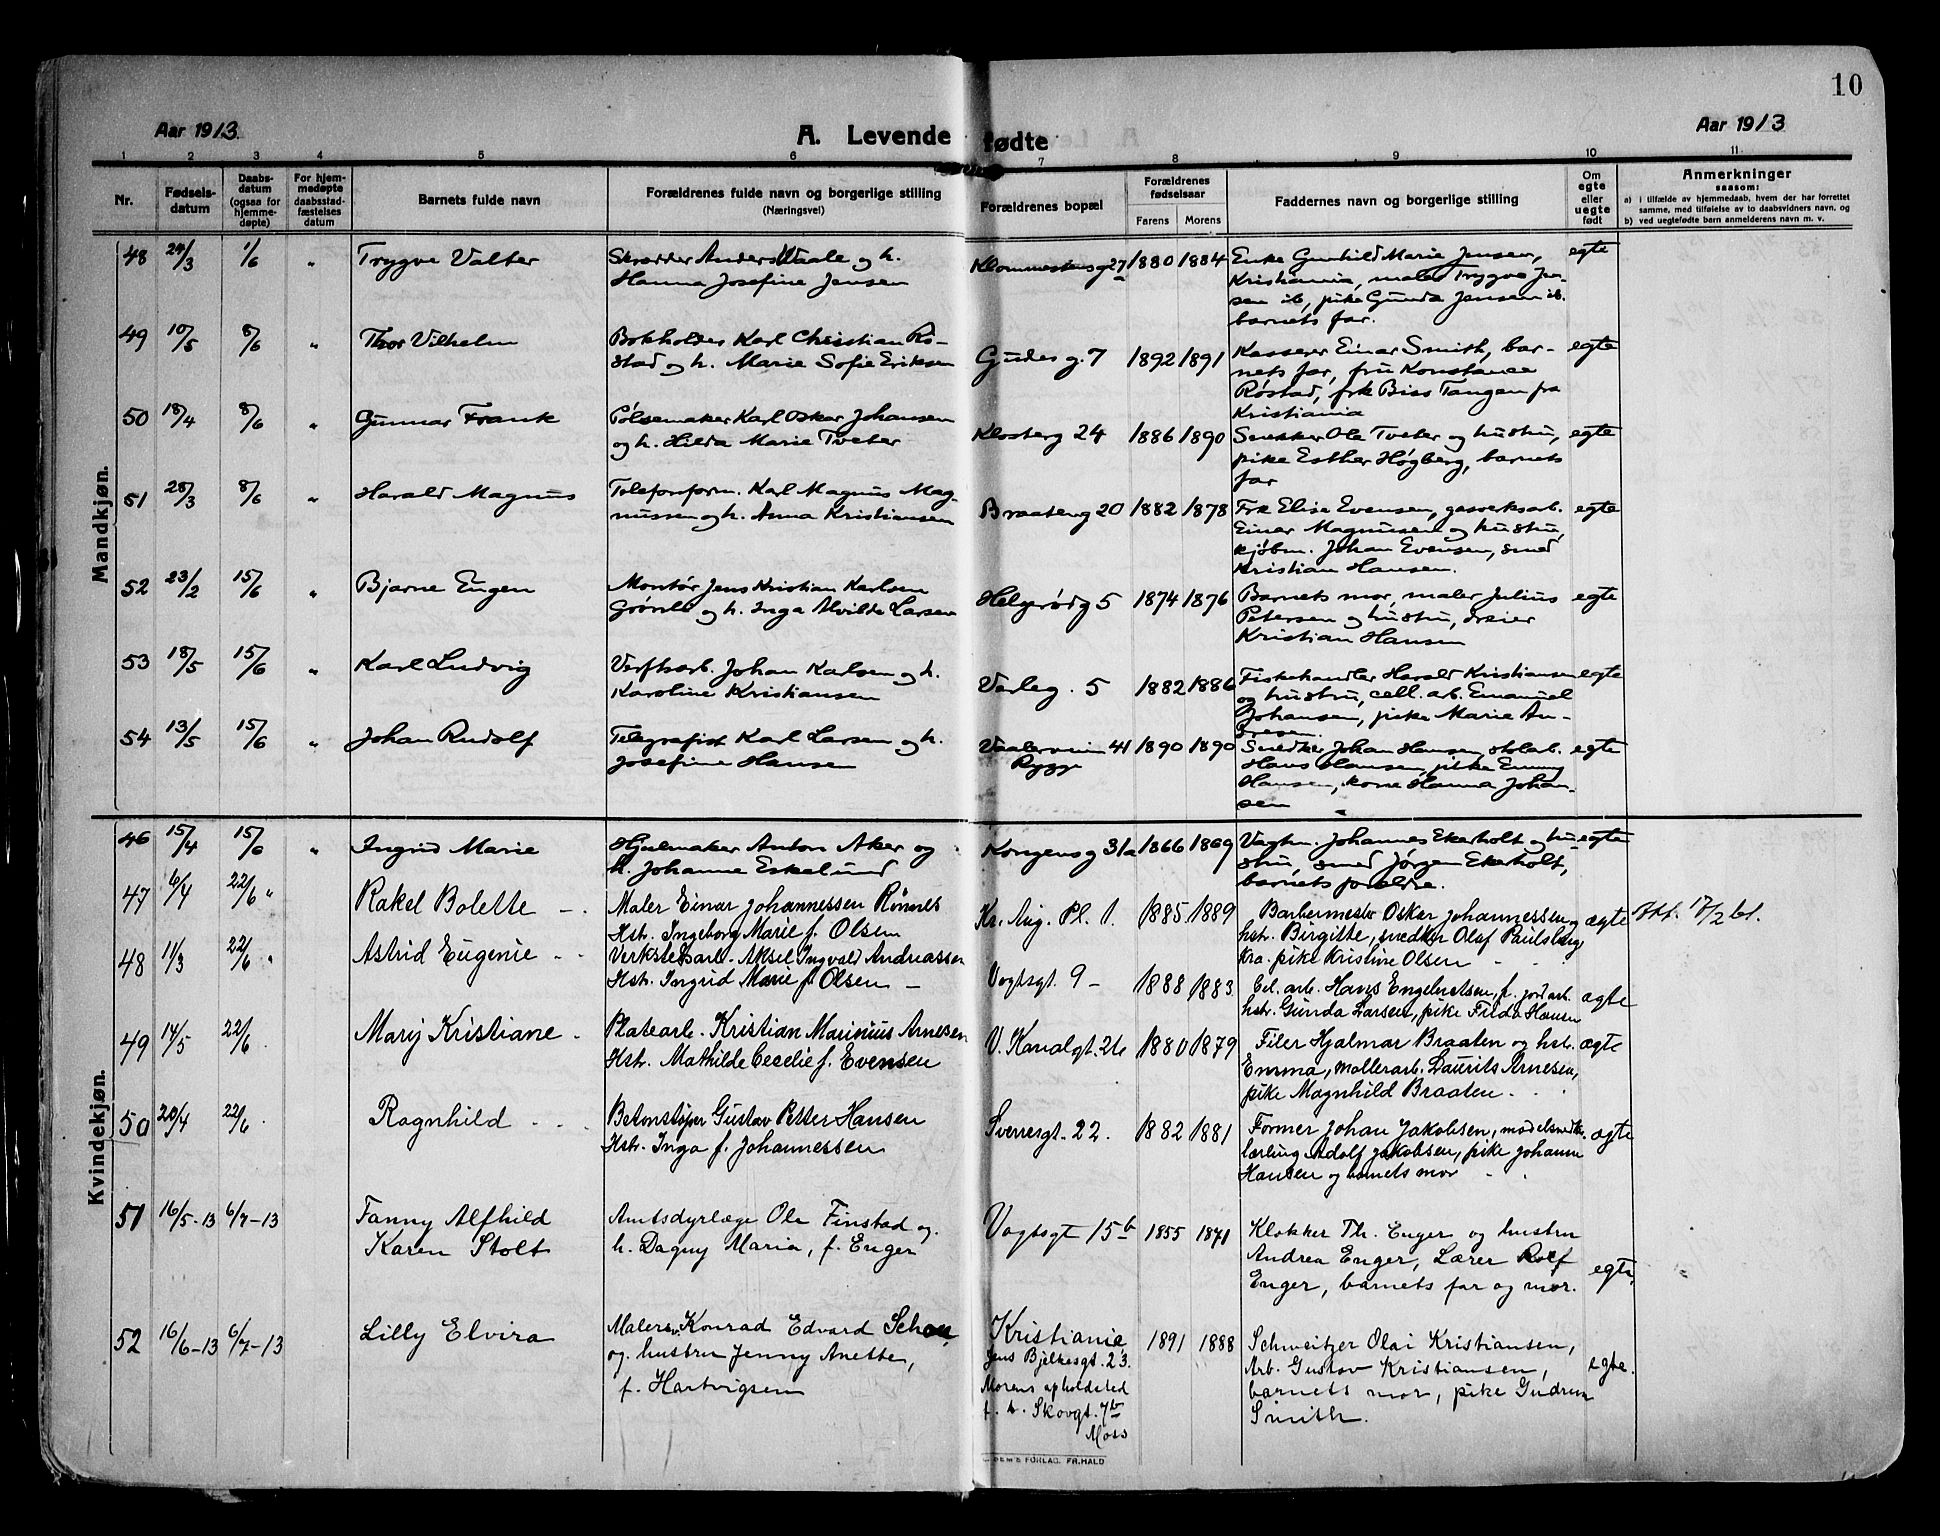 10
Aar 1913.
A. Levende fødte
Aar 1913
1 2 3 4 5 6 7 8 9 10 11
Nr.
Fødselsdatum
Daabsdatum (ogsaa for hjemmedøpte)
For hjemmedøpte daabsstadfæstelses datum
Barnets fulde navn
Forældrenes fulde navn og borgerlige stilling
(Næringsvei)
Forældrenes bopæl
Forældrenes fødselsaar
Farens Morens
Faddernes navn og borgerlige stilling
Om egte eller uegte født
Anmerkninger
saasom:
a) i tilfælde av hjemmedaab, hvem der har forrettet
samme, med tilføielse av to daabsvidners navn, og
b) ved uegtefødte barn anmelderens navn m. v.
Mandkjøn.
48 24/3 1/6 " Trygve Valter Skrædder Anders Vaale og h. Klommestens g 27 a 1880 1884 Enke Gunhild Marie Jensen, egte
Hanna Josefine Jensen Kristiania, maler Trygve Jen-
sen ib, pike Gunda Jensen ib.
barnets far.
49 10/5 8/6 " Thor Vilhelm Bokholder Karl Christian Rø- Gudes g. 7 1892 1891 Kasserer Einar Smith, bar- egte
stad og h. Marie Sofie Eriksen nets far, fru Konstance
Røstad, frk Biss Tangen fra
Kristiania
50 18/4 8/6 " Gunnar Frank Pølsemaker Karl Oskar Johansen Klosterg 24 1886 1890 Snekker Ole Tveter og hustru, egte
og h. Hilda Marie Tveter pike Esther Høgberg, barnets
far
51 28/3 8/6 " Harald Magnus Telefonform. Karl Magnus Mag- Braateng 20 1882 1878 Frk Elise Evensen, gasverksarb. egte
nussen og h. Anna Kristiansen Einar Magnusen og hustru,
kjøbm. Johan Evensen, smed
Kristian Hansen.
52 23/2 15/6 " Bjarne Eugen Montør Jens Kristian Karlsen Helgerødg 5 1874 1876 Barnets mor, maler Julius egte
Grønli og h. Inga Alvilde Larsen Petersen og hustru, dreier
Kristian Hansen
53 18/5 15/6 " Karl Ludvig Verftsarb. Johan Karlsen og h. Varleg. 5 1882 1886 Fiskehandler Harald Kristiansen egte
Karoline Kristiansen og hustru, cell. arb. Emanuel
Johansen, pike Marie An-
dresen.
54 13/5 15/6 " Johan Rudolf Telegrafist Karl Larsen og h. Vaalerveien 41 1890 1890 Snedker Johan Hansen, skolarb. egte
Josefine Hansen Rygge Hans Hansen, pike Emmy
Hansen, kone Hanna Johan-
sen
Kvindekjøn.
46 15/4 15/6 " Ingrid Marie Hjulmaker Anton Aker og Kongensg 31a 1866 1869 Vagtm. Johannes Ekerholt og hu- egte
h. Johanne Eskelund stru, smed Jørgen Ekerholt,
barnets foreldre.
47 6/4 22/6 " Rakel Bolette Maler Einar Johannessen Rønnes Kr. Aug. Pl. 1. 1885 1889 Barbermester Oskar Johannessen og ægte Att. 17/2 61.
Hstr. Ingeborg Marie f. Olsen hstr. Birgitte, snedker Olaf Paulsberg
Kra. pike Kristine Olsen
48 11/3 22/6 " Astrid Eugenie Verkstedarb. Aksel Ingvald Andreassen Vogtsgt. 9 1888 1883. Cel. arb. Hans Engebretsen, f. jordarb. ægte
Hstr. Ingrid Marie f. Olsen hstr. Gunda Larsen, pike Frida Hansen
49 14/5 22/6 Marij Kristiane Platearb. Kristian Marinius Arnesen V. Kanalgt. 26 1880 1879 Filer Hjalmar Braaten og hstr. ægte
Hstr. Mathilde Cecelie f. Evensen Emma, møllerarb. Laurits Arnesen,
pike Magnhild Braaten
50 20/4 22/6 Ragnhild Betonstøper Gustav Petter Hansen Sverresgt. 22. 1882 1881 Former Johan Jakobsen, modelsnedk. ægte
Hstr. Inga f. Johannessen lærling Adolf Jakobsen, pike Johanne
Hansen og barnets mor
51 16/5-13 6/7-13 Fanny Alfhild Amtsdyrlæge Ole Finstad og Vogtsgt 15b 1855 1871 Klokker Th. Enger og hustru egte.
Karen Stolt h. Dagny Maria, f. Enger Andrea Enger, Lærer Rolf
Enger, barnets far og mor.
52 16/6-13 6/7-13 Lilly Elvira Malersv. Konrad Edvard Schou, Kristiania, 1891 1888 Schweitzer Olai Kristiansen, egte.
og hustru Jenny Anette, Jens Bjelkesgt. 23. Arb. Gustav Kristiansen,
f. Hartvigsen Morens opholdsted barnets mor, pike Gudrun
f. t. Skovgt. 7b Smith.
Moss
FORLAG. FR. HALD